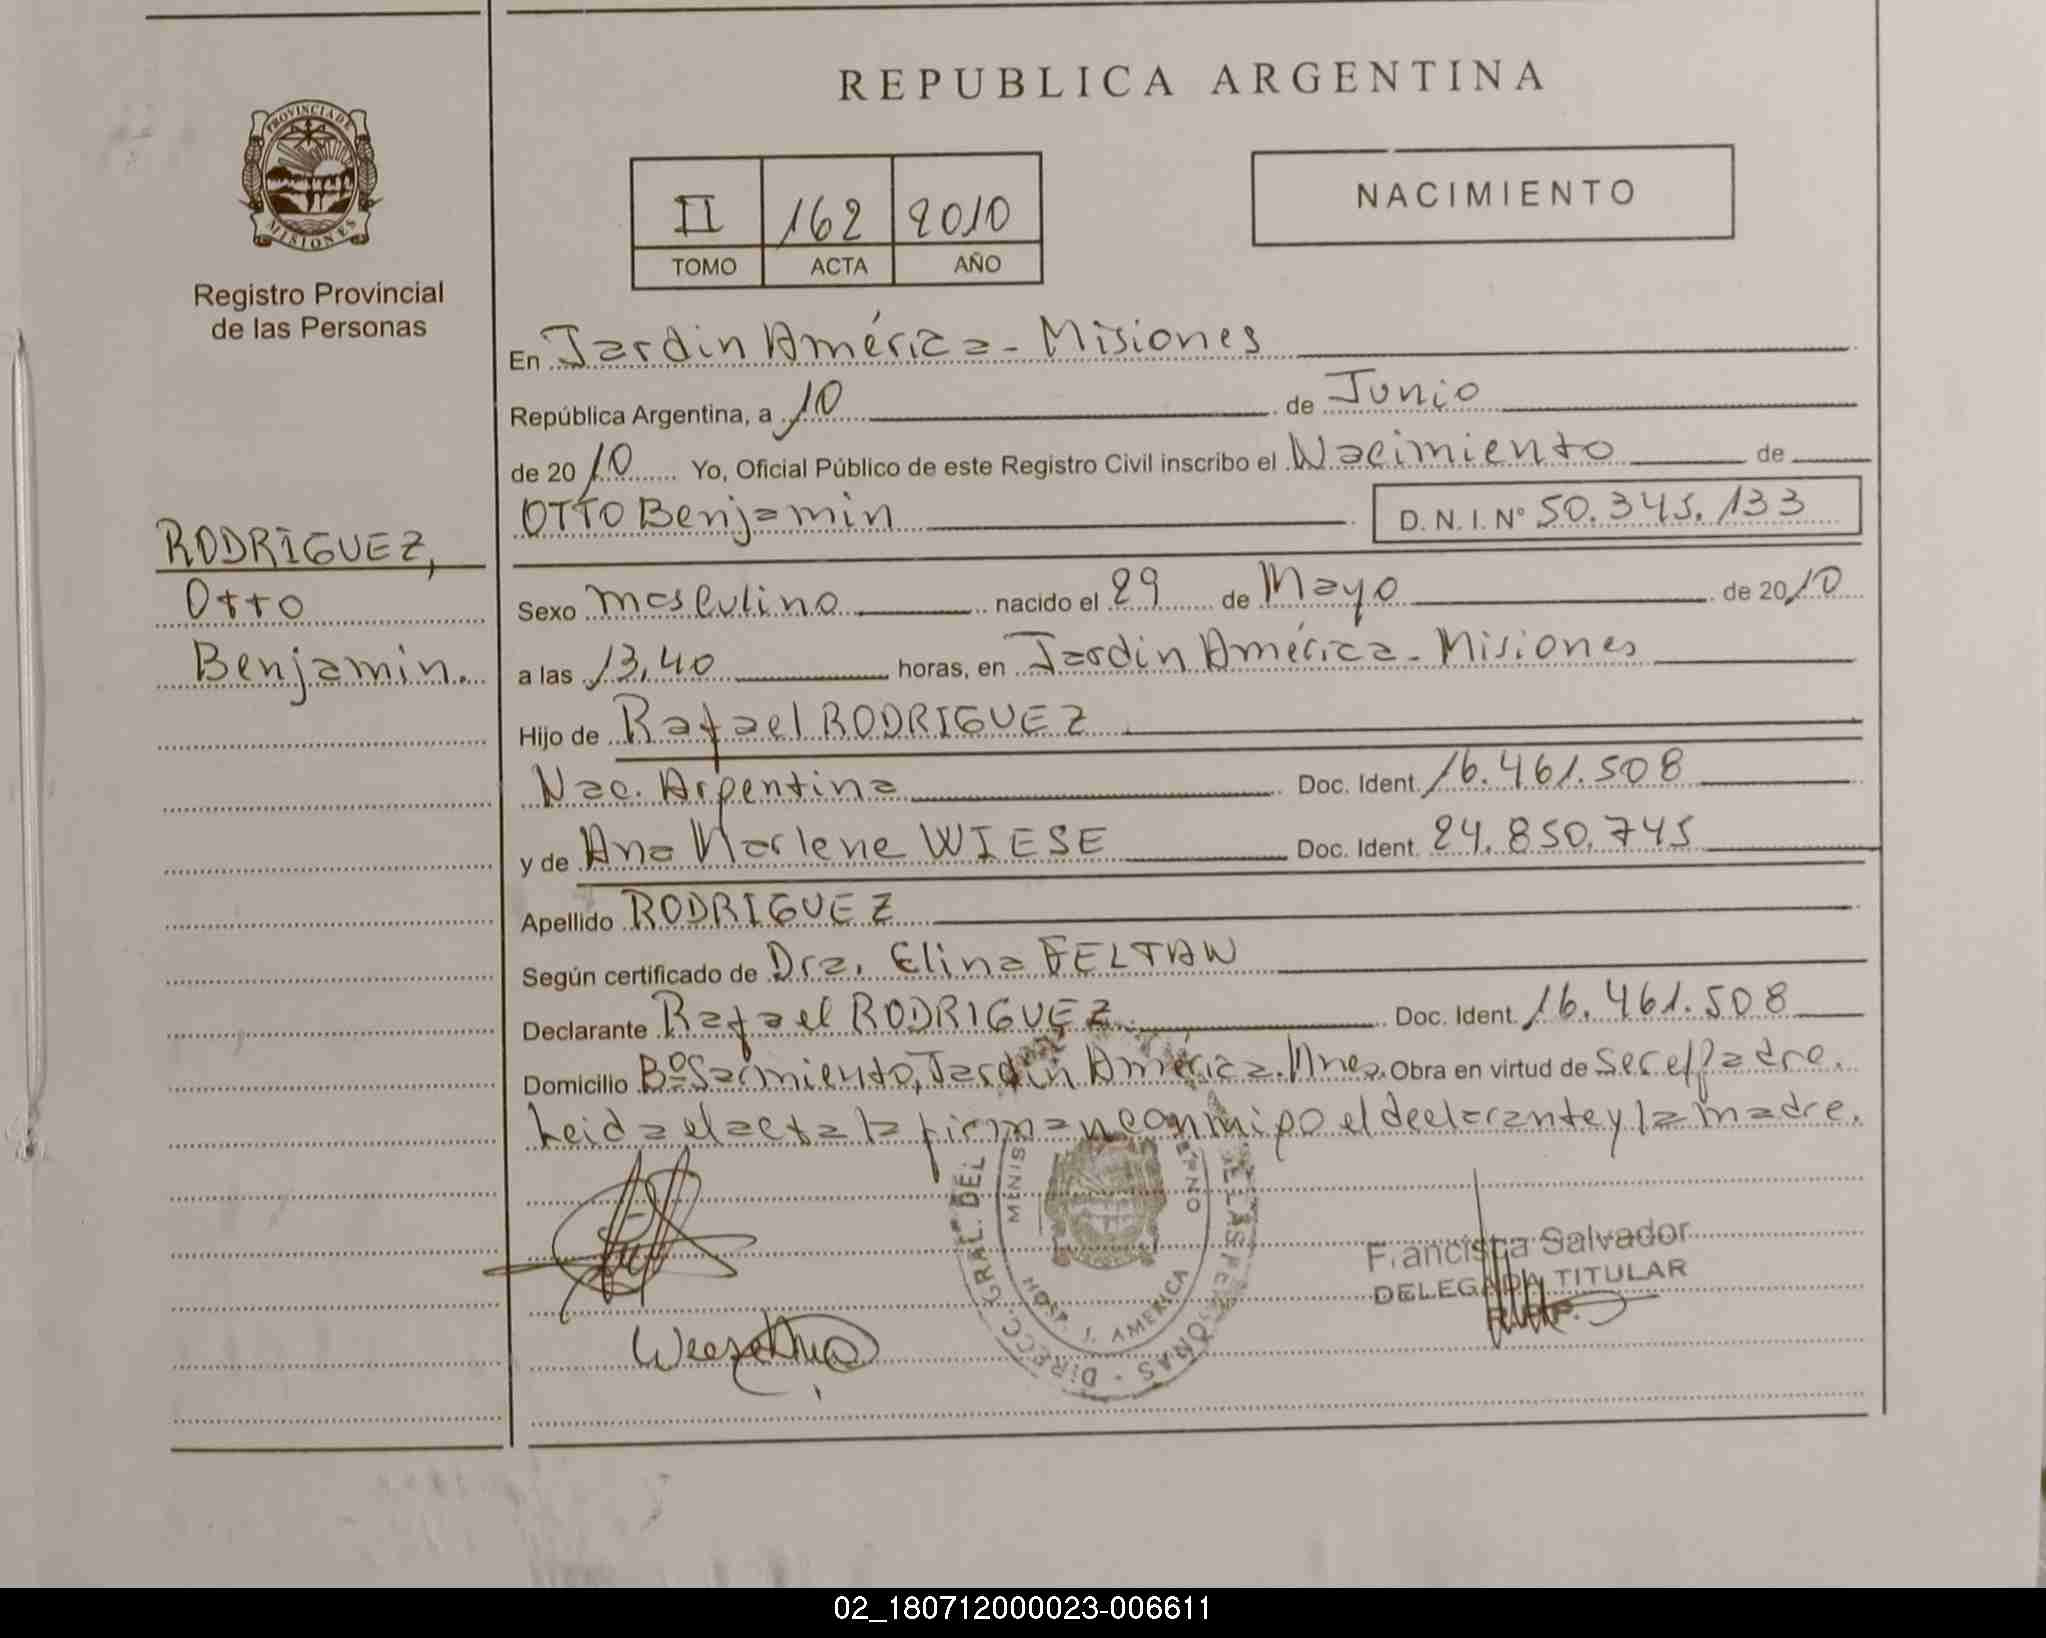 REPUBLICA ARGENTINA
PROVINCIA DE
MISIONES
Registro Provincial
de las Personas
II 162 2010
TOMO ACTA AÑO
NACIMIENTO
En Jardin América - Misiones
República Argentina, a 10 de Junio
de 2010 Yo, Oficial Público de este Registro Civil inscribo el Nacimiento de
OTTO Benjamin D. N. I. N° 50.345.133
RODRIGUEZ,
Otto
Benjamin.
Sexo masculino nacido el 29 de Mayo de 2010
a las 13,40 horas, en Jardin América - Misiones
Hijo de Rafael RODRIGUEZ
Nac. Argentina Doc. Ident. 16.461.508
y de Ana Marlene WIESE Doc. Ident. 24.850.745
Apellido RODRIGUEZ
Según certificado de Dra. Elina FELTAN
Declarante Rafael RODRIGUEZ Doc. Ident. 16.461.508
Domicilio Bº Sarmiento, Jardin América. Mnes. Obra en virtud de ser el padre.
Leida el acta la firman conmigo el declarante y la madre.
DIRECC. GRAL. DEL
DE LAS PERSONAS
MINIS
J. AMERICA
Francisca Salvador
DELEGADA TITULAR
02_180712000023-006611